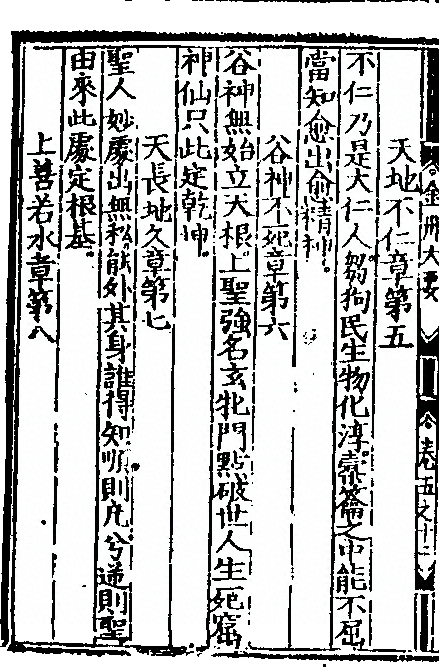 金丹大要 卷五之十二
天地不仁章第五
不仁乃是大仁人芻狗民生物化淳。橐籥之中能不屈
當知愈出愈精神。
谷神不死章第六
谷神無始立天根。上聖強名玄牝門點破世人生死窟
神仙只此定乾坤。
天長地久章第七
聖人妙處出無私。能外其身誰得知。順則凡兮逆則聖
由來此處定根基。
上善若水章第八